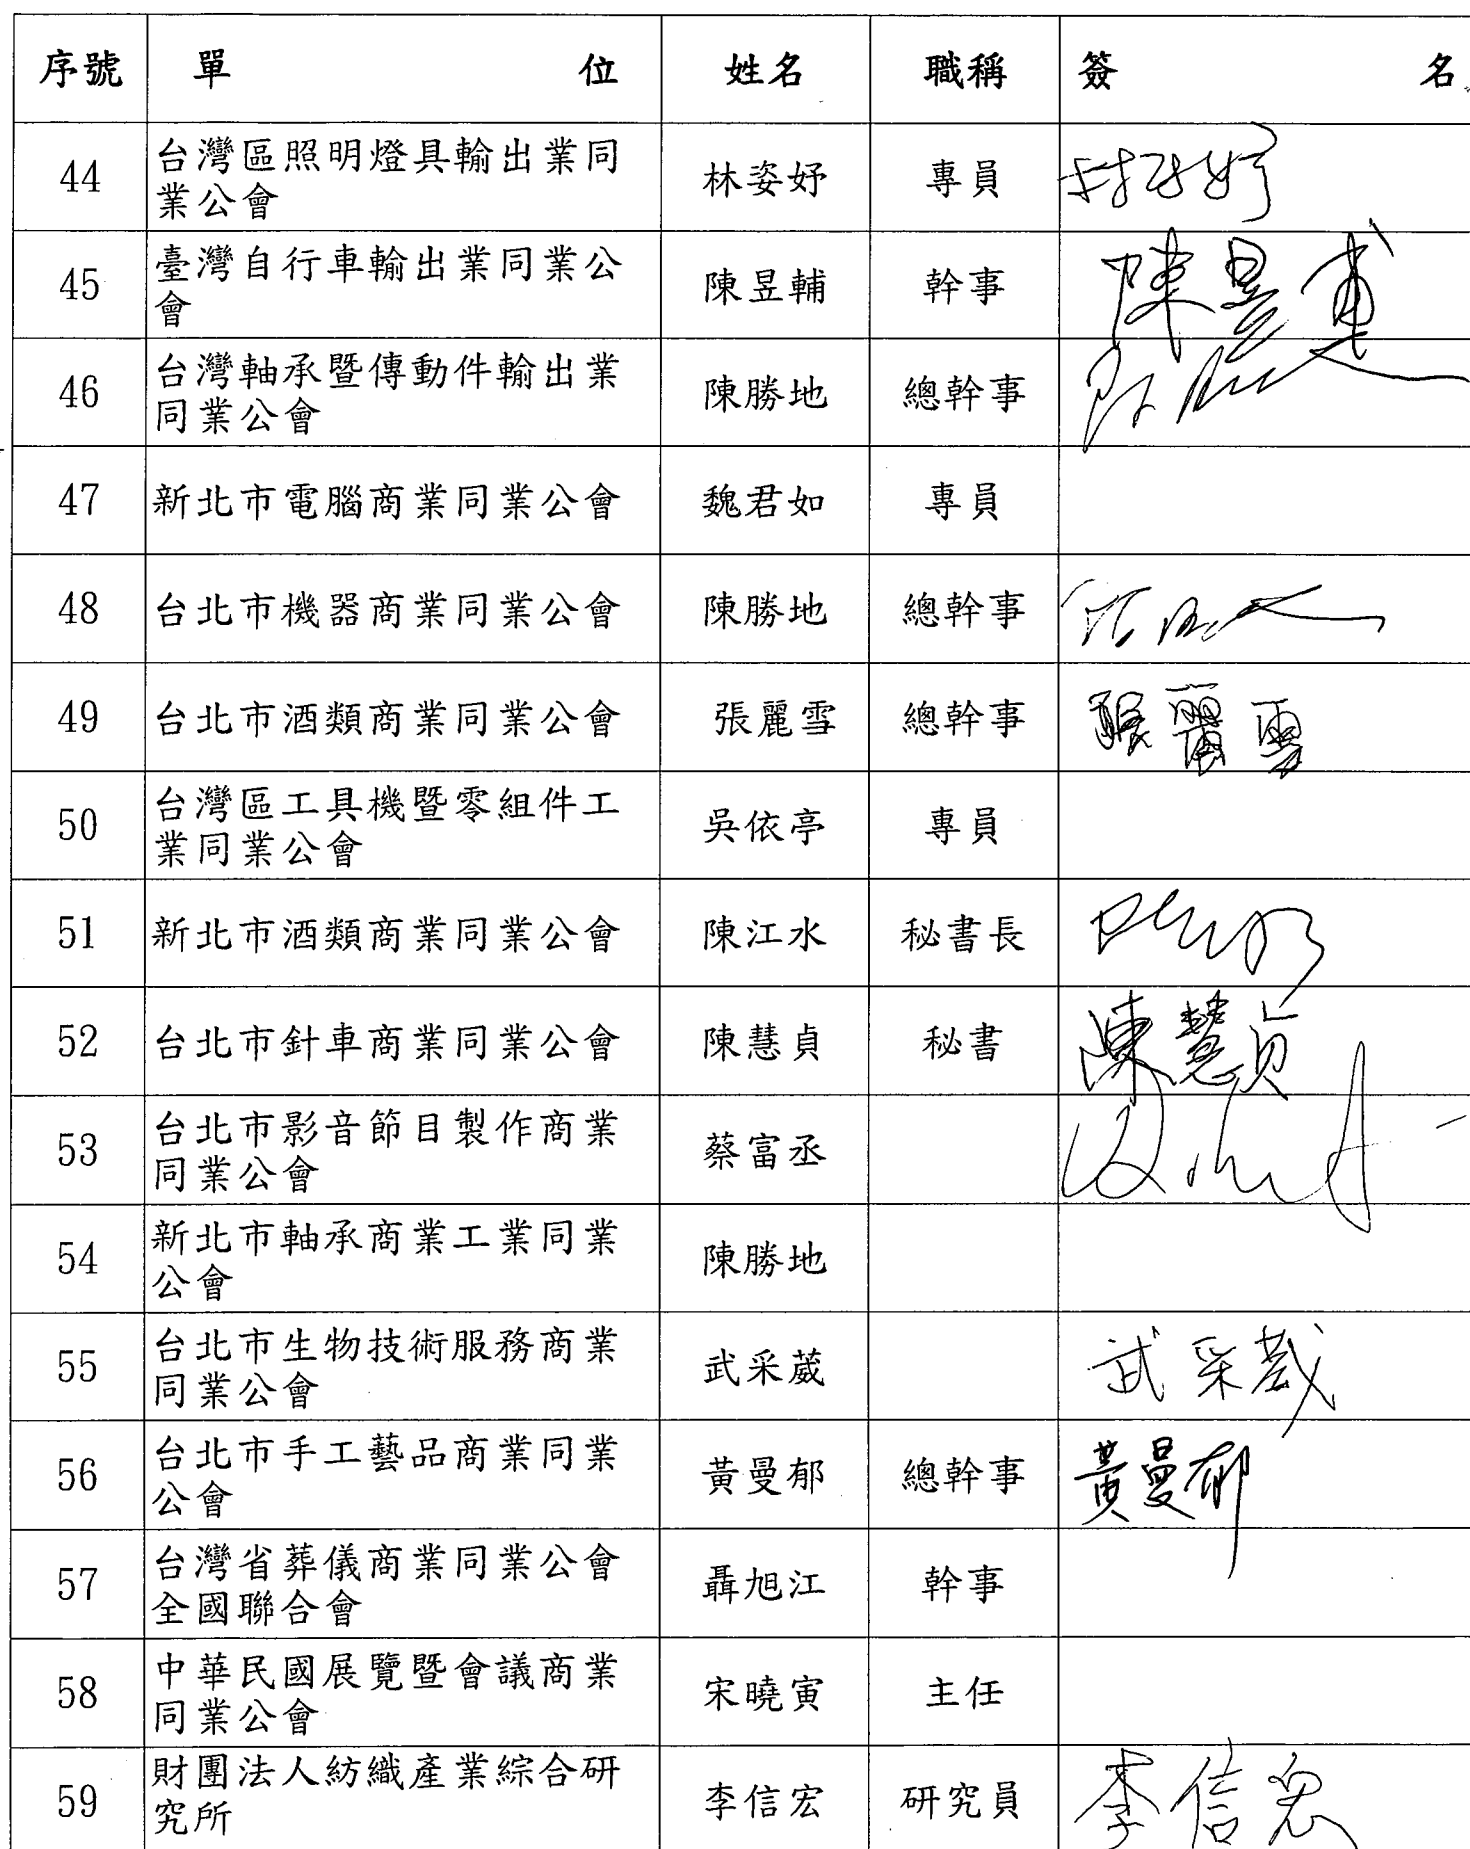 序號 單位 姓名 職稱 簽名
44 台灣區照明燈具輸出業同業公會 林姿妤 專員 林姿妤
45 臺灣自行車輸出業同業公會 陳昱輔 幹事 陳昱甫
46 台灣軸承暨傳動件輸出業同業公會 陳勝地 總幹事
47 新北市電腦商業同業公會 魏君如 專員
48 台北市機器商業同業公會 陳勝地 總幹事
49 台北市酒類商業同業公會 張麗雪 總幹事 張麗雪
50 台灣區工具機暨零組件工業同業公會 吳依亭 專員
51 新北市酒類商業同業公會 陳江水 秘書長
52 台北市針車商業同業公會 陳慧貞 秘書 陳慧貞
53 台北市影音節目製作商業同業公會 蔡富丞
54 新北市軸承商業工業同業公會 陳勝地
55 台北市生物技術服務商業同業公會 武采葳 武采葳
56 台北市手工藝品商業同業公會 黃曼郁 總幹事 黃曼郁
57 台灣省葬儀商業同業公會全國聯合會 聶旭江 幹事
58 中華民國展覽暨會議商業同業公會 宋曉寅 主任
59 財團法人紡織產業綜合研究所 李信宏 研究員 李信宏